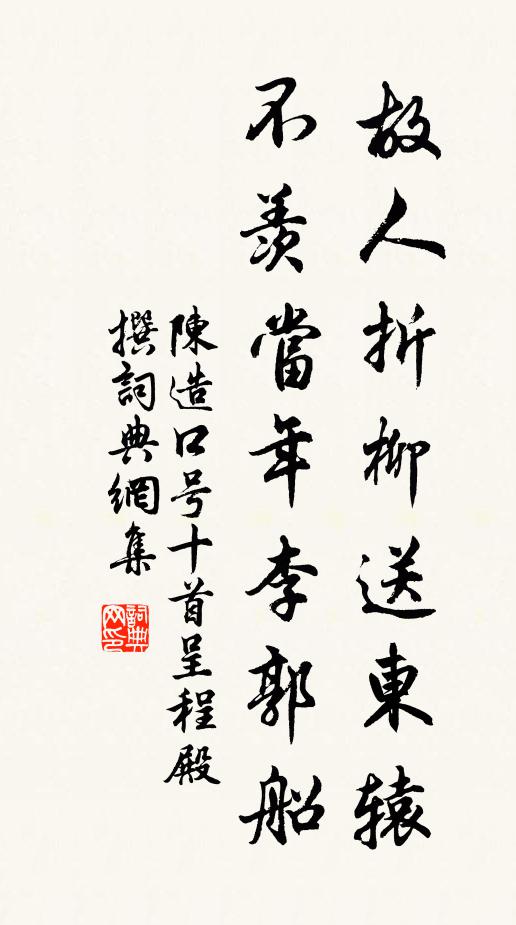 故人折柳送東辕
不羨當年李郭船
陳造口号十首呈程殿
撰詞典網集
詞典網印